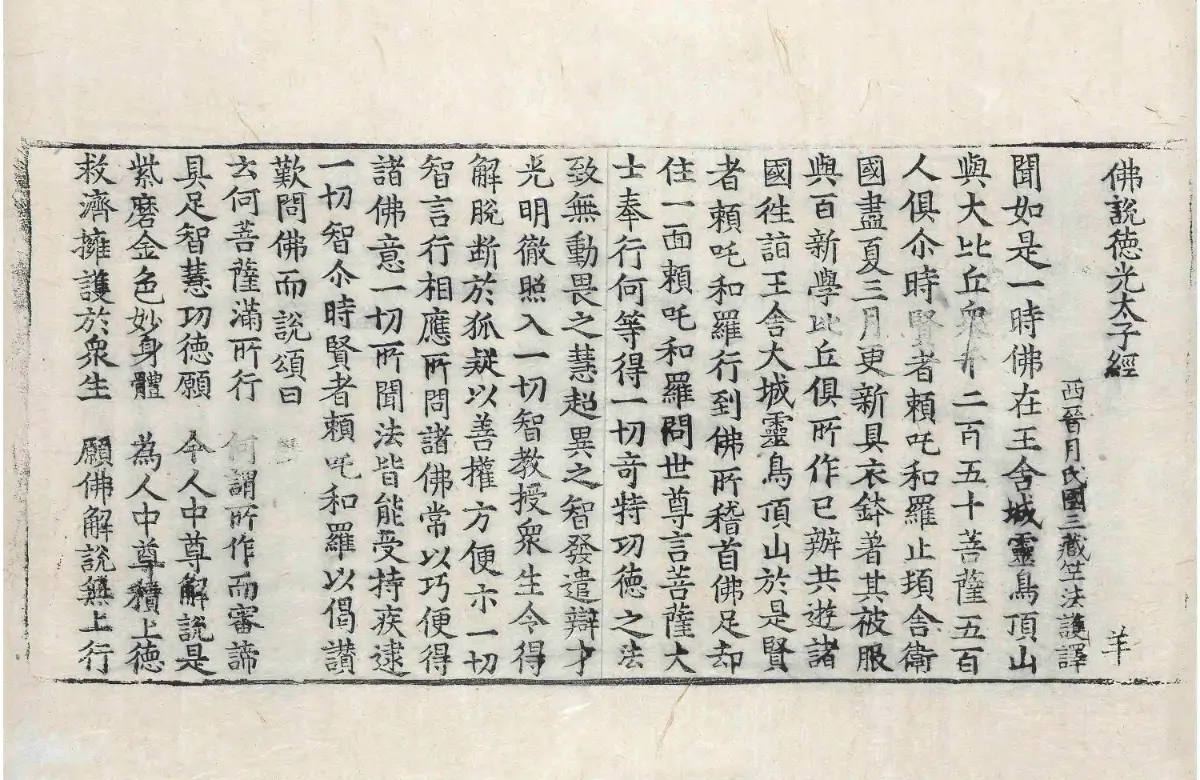 佛說德光太子經 羊
西晉月氏國三藏竺法護譯
聞如是一時佛在王舍城靈鳥頂山
與大比丘衆千二百五十菩薩五百
人俱尒時賢者頼吒和羅止頊舍衛
國盡夏三月更新具衣鉢著其被服
與百新學比丘俱所作已辦共遊諸
國徃詣王舍大城靈鳥頂山於是賢
者頼吒和羅行到佛所稽首佛足却
住一面頼吒和羅問世尊言菩薩大
士奉行何等得一切奇特功德之法
致無動畏之慧超異之智發遣辯才
光明徹照入一切智教授衆生令得
解脫断於狐疑以善權方便示一切
智言行相應所問諸佛常以巧便得
諸佛意一切所聞法皆能受持疾逮
一切智尒時賢者頼吒和羅以偈讃
歎問佛而說頌曰
云何菩薩滿所行 何謂所作而審諦
具足智慧功德願 令人中尊解說是
紫磨金色妙身體 為人中尊積上德
救濟擁護於衆生 願佛解說無上行